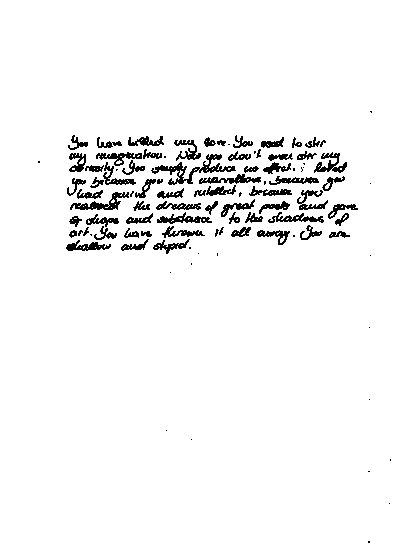 You have killed my love. You used to stir
my imagination. Now you don't even stir my
curiosity. You simply produce no effect. I loved
you because you were marvellous, because you
had genius and intellect, because you
realised the dreams of great poets and gave
shape and substance to the shadows of
art. You have thrown it all away. You are
shallow and stupid.